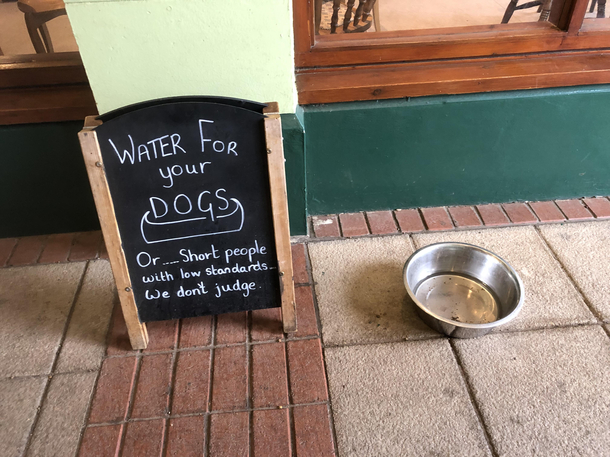 WATER FOR
your
DOGS
Or.....Short people
with low standards...
We don't judge.